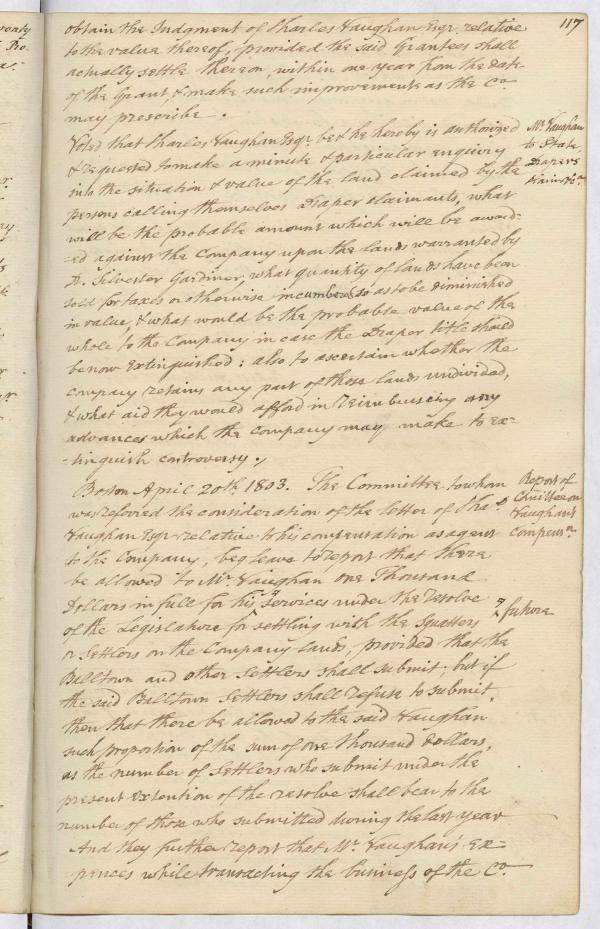 117
obtain the Judgment of Charles Vaughan Esqr. relative
to the value thereof, provided the said Grantees shall
actually settle thereon, within one year from the date
of the Grant, & make such improvements as the Co.
may prescribe.
Voted that Charles Vaughan Esqr. be & he hereby is authorized
& requested to make a minute & particular enquiry
into the situation & value of the land claimed by the
persons calling themselves Draper claimants, what
will be the probable amount which will be award-
-ed against the Company upon the lands warranted by
Dr. Silvester Gardiner, what quantity of lands have been
sold for taxes or otherwise incumbered, so as to be diminished
in value, & what would be the probable value of the
whole to the Company in case the Draper title should
be now extinguished: also to ascertain whether the
Company retains any part of those lands undivided,
& what aid they would afford in reimbursing any
advances which the Company may make to ex-
-tinguish controversy.
Mr. Vaughan
to State
Drapers
Claim &c.
Boston April 20th. 1803. The Committee to whom
was referred the consideration of the letter of Chas.
Vaughan Esqr relative to his compensation as agent
to the Company, beg leave to report that there
be allowed to Mr. Vaughan one Thousand
Dollars in full for his services under the resolve
of the Legislature for settling with the Squatters
or Settlers on the Company lands, provided that the
Balltown and other Settlers shall submit; but if
the said Balltown Settlers shall refuse to submit,
then that there be allowed to the said Vaughan
such proportion of the sum of one thousand dollars,
as the number of Settlers who submit under the
present extention of the resolve shall bear to the
number of those who submitted during the last year
And they further report that Mr. Vaughan's Ex-
pences while transacting the business of the Co.
Report of
Committee on
Vaughans
Compensn.
future